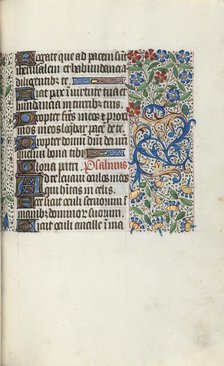 Rogate que ad pacem sunt
iherusalem et habundancia
diligentibus te.
Fiat pax in virtute tua et
habundancia in turribus tuis
Propter frēs meos et proxi
mos meos loq̄bar pacē de te.
Propter domū dn̄i dei nr̄i
quesivi bona tibi
Gloria patri. Psalmus
Ad te levavi oculos meos
qui hitas in celis.
Ecce sicut oculi servorum ī
manibz dominorz suorum.
Sicut oculi ancille in ma